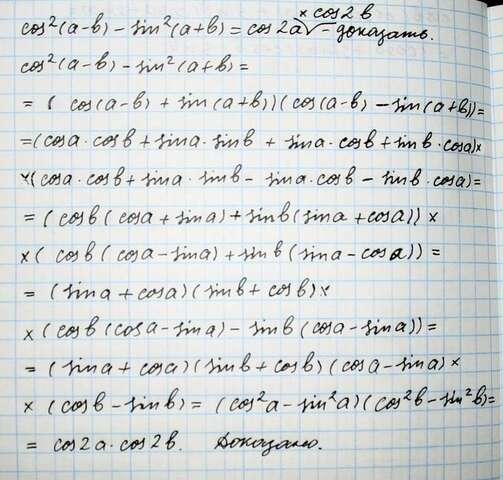 × cos2b
cos²(a-b) - sin²(a+b) = cos2a √ - доказать.
cos²(a-b) - sin²(a+b) =
= ( cos(a-b) + sin(a+b))(cos(a-b) - sin(a+b))=
=(cosa·cosb + sina·sinb + sina·cosb + sinb·cosa)×
×(cosa·cosb + sina·sinb - sina·cosb - sinb·cosa)=
= (cosb(cosa + sina) + sinb(sina + cosa)) ×
× ( cosb(cosa - sina) + sinb(sina - cosa)) =
= (sina + cosa)(sinb + cosb) ×
× (cosb(cosa - sina) - sinb(cosa - sina)) =
= (sina + cosa)(sinb + cosb)(cosa - sina) ×
× (cosb - sinb) = (cos²a - sin²a)(cos²b - sin²b)=
= cos2a·cos2b. Доказано.